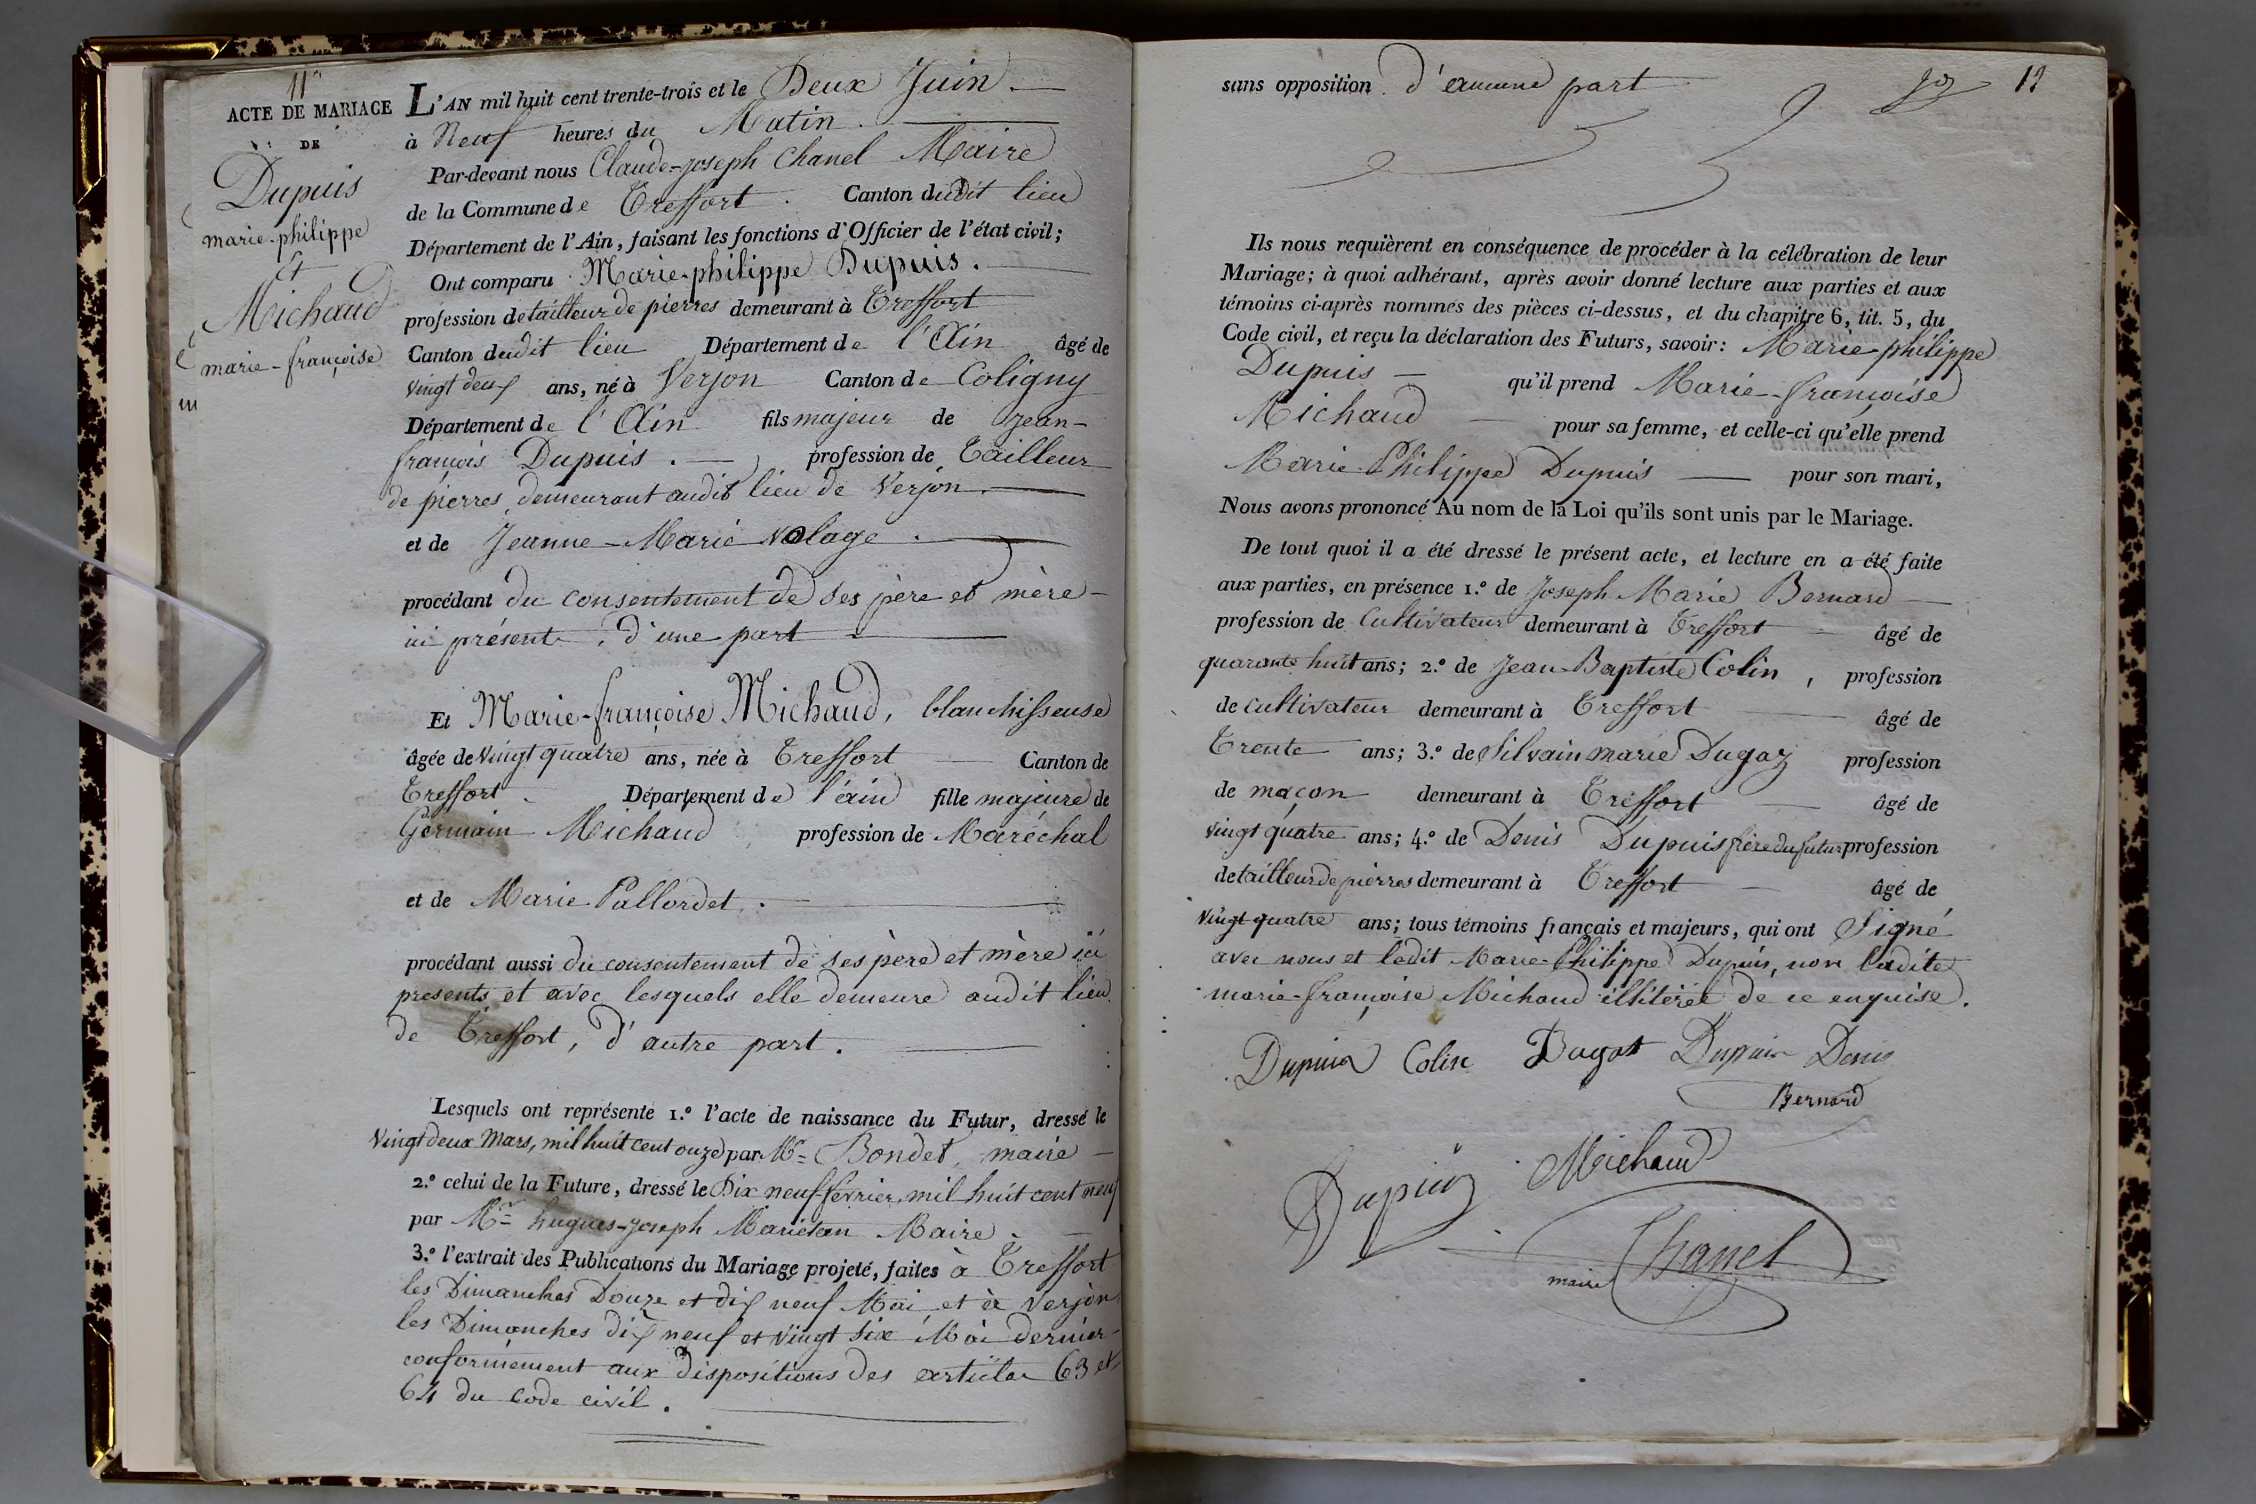 11e
ACTE DE MARIAGE
DE
Dupuis
marie-philippe
Et
Michaud
marie-françoise
L'AN mil huit cent trente-trois et le Deux Juin
à Neuf heures du Matin
Par-devant nous Claude-Joseph Chanel Maire
de la Commune de Treffort. Canton dudit lieu
Département de l'Ain, faisant les fonctions d'Officier de l'état civil;
Ont comparu Marie-philippe Dupuis.
profession de tailleur de pierres demeurant à Treffort
Canton dudit lieu Département de l'Ain âgé de
vingt deux ans, né à Verjon Canton de Coligny
Département de l'Ain fils majeur de Jean-
françois Dupuis. profession de Tailleur
de pierres demeurant audit lieu de Verjon.
et de Jeanne-Marie Volage.
procédant du consentement de ses père et mère
ici présents, d'une part
Et Marie-françoise Michaud, blanchisseuse
âgée de vingt quatre ans, née à Treffort Canton de
Treffort. Département de l'ain fille majeure de
Germain Michaud profession de Maréchal
et de Marie Pallordet.
procédant aussi du consentement de ses père et mère ici
présents et avec lesquels elle demeure audit lieu
de Treffort, d'autre part.
Lesquels ont représenté 1.º l'acte de naissance du Futur, dressé le
vingt deux Mars, mil huit cent onze par Mr Bondet, maire
2.º celui de la Future, dressé le Dix neuf fevrier mil huit cent neuf
par Mr hugues-Joseph Mariétan Maire.
3.º l'extrait des Publications du Mariage projeté, faites à Treffort
les Dimanches Douze et dix neuf Mai et à Verjon
les Dimanches dix neuf et vingt six Mai dernier
conformément aux dispositions des articles 63 et
64 du code civil.
12
sans opposition d'aucune part
Ils nous requièrent en conséquence de procéder à la célébration de leur
Mariage; à quoi adhérant, après avoir donné lecture aux parties et aux
témoins ci-après nommés des pièces ci-dessus, et du chapitre 6, tit. 5, du
Code civil, et reçu la déclaration des Futurs, savoir: Marie-philippe
Dupuis qu'il prend Marie-françoise
Michaud pour sa femme, et celle-ci qu'elle prend
Marie Philippe Dupuis pour son mari,
Nous avons prononcé Au nom de la Loi qu'ils sont unis par le Mariage.
De tout quoi il a été dressé le présent acte, et lecture en a été faite
aux parties, en présence 1.º de Joseph Marie Bernard
profession de Cultivateur demeurant à Treffort âgé de
quarante huit ans; 2.º de Jean-Baptiste Colin, profession
de cultivateur demeurant à Treffort âgé de
Trente ans; 3.º de Silvain marie Dugaz profession
de maçon demeurant à Treffort âgé de
vingt quatre ans; 4.º de Denis Dupuis frère du futur profession
de tailleur de pierres demeurant à Treffort âgé de
vingt quatre ans; tous témoins français et majeurs, qui ont Signé
avec nous et ledit Marie-Philippe Dupuis, non ladite
marie-françoise Michaud illitérée de ce enquise.
Dupuis Colin Dugas Dupuis Denis
Bernard
Michaud
Dupuis
maire Chanel